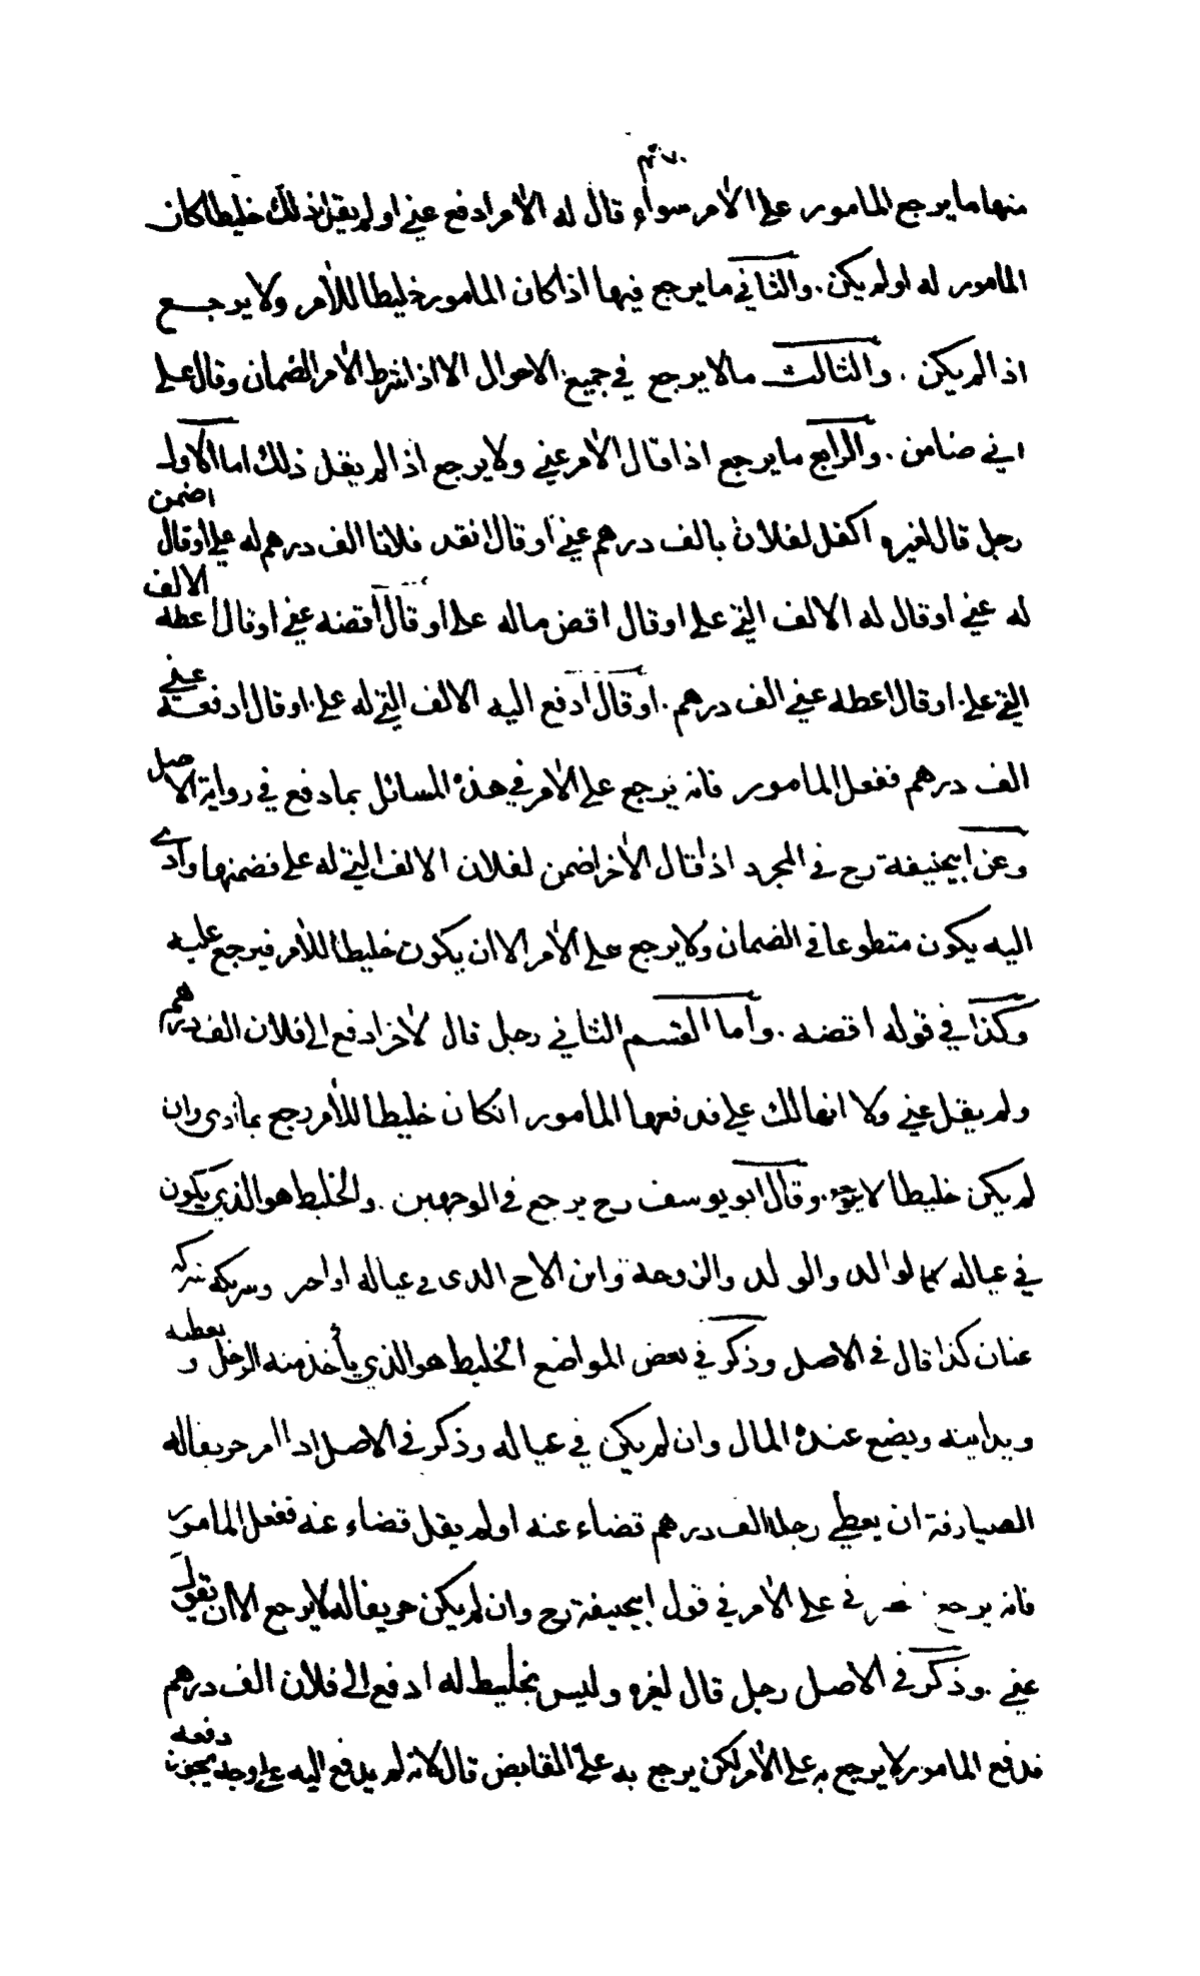 منها ما يرجع المامور على الآمر سواء قال له الآمر ادفع عني او لم يقل ذلك خليطا كان
المامور له او لم يكن . والثاني ما يرجع فيها اذا كان المامور خليطا للآمر ولا يرجع
اذا لم يكن . والثالث مالا يرجع في جميع الاحوال الا اذا شرط الآمر الضمان وقال على
اني ضامن . والرابع ما يرجع اذا قال الآمر عني ولا يرجع اذا لم يقل ذلك اما الاول
رجل قال لغيره اكفل لفلان بالف درهم عني او قال انقد فلانا الف درهم له علي او قال اضمن
له عني او قال له الالف التي علي او قال اقض ماله علي او قال اقضه عني او قال اعطه الالف
التي علي . او قال اعطه عني الف درهم . او قال ادفع اليه الالف التي له علي . او قال ادفع عني
الف درهم ففعل المامور فانه يرجع على الآمر في هذه المسائل بما دفع في رواية الاصل
وعن ابيحنيفة رح في المجرد اذا قال لآخر اضمن لفلان الالف التي له علي فضمنها وادى
اليه يكون متطوعا في الضمان ولا يرجع على الآمر الا ان يكون خليطا للآمر فيرجع عليه
وكذا في قوله اقضه . واما القسم الثاني رجل قال لآخر ادفع الى فلان الف درهم
ولم يقل عني ولا انها لك علي فدفعها المامور انكان خليطا للآمر رجع بما ادى وان
لم يكن خليطا لا يرجع . وقال ابو يوسف رح يرجع في الوجهين . والخليط هو الذي يكون
في عياله كالوالد والولد والزوجة وابن الاخ الذي في عياله او اجير وشريكه شركة
عنان كذا قال في الاصل وذكر في بعض المواضع الخليط هو الذي يأخذ منه الرجل و يعطيه
ويداينه ويضع عنده المال وان لم يكن في عياله وذكر في الاصل اذا امر حريفا له
الصيارفة ان يعطي رجلا الف درهم قضاء عنه او لم يقل قضاء عنه ففعل المامور
فانه يرجع على الآمر في قول ابيحنيفة رح وان لم يكن حريفا له لا يرجع الا ان يقول
عني . وذكر في الاصل رجل قال لغيره وليس بخليط له ادفع الى فلان الف درهم
فدفع المامور لا يرجع به على الآمر لكن يرجع به على القابض قال لانه لم يدفع اليه على وجه يجوز دفعه